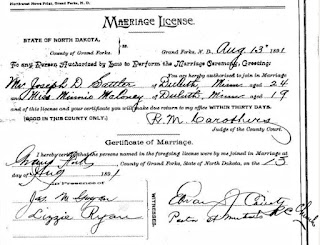 Northwest News Print, Grand Forks, N. D.
MARRIAGE LICENSE.
STATE OF NORTH DAKOTA,
County of Grand Forks. Grand Forks, N. D. Aug 13 1891
To any Person Authorized by Law to Perform the Marriage Ceremony, Greeting:
You are hereby authorized to join in Marriage
Mr. Joseph D. of Duluth, Minn aged 24
and Miss Minnie Maloney of Duluth, Minn aged 19
and of this license and your certificate you will make due return to my office WITHIN THIRTY DAYS.
[GOOD IN THIS COUNTY ONLY.] R. M. Carothers
Judge of the County Court.
Certificate of Marriage.
I hereby certify that the persons named in the foregoing license were by me joined in Marriage
at Grand Forks County of Grand Forks, State of North Dakota, on the 13
day of Aug 1891
In Presence of
Jas. M.
Lizzie Ryan
WITNESSES.
Pastor of